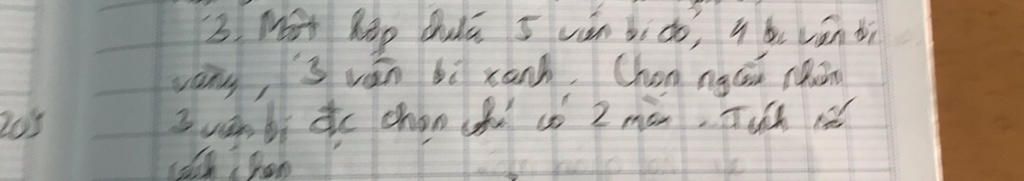 3. Một hộp chứa 5 viên bi đỏ, 4 bi viên bi
vàng, 3 viên bi xanh. Chọn ngẫu nhiên
3 viên bi đc chọn chỉ có 2 màu. Tính số
cách chọn